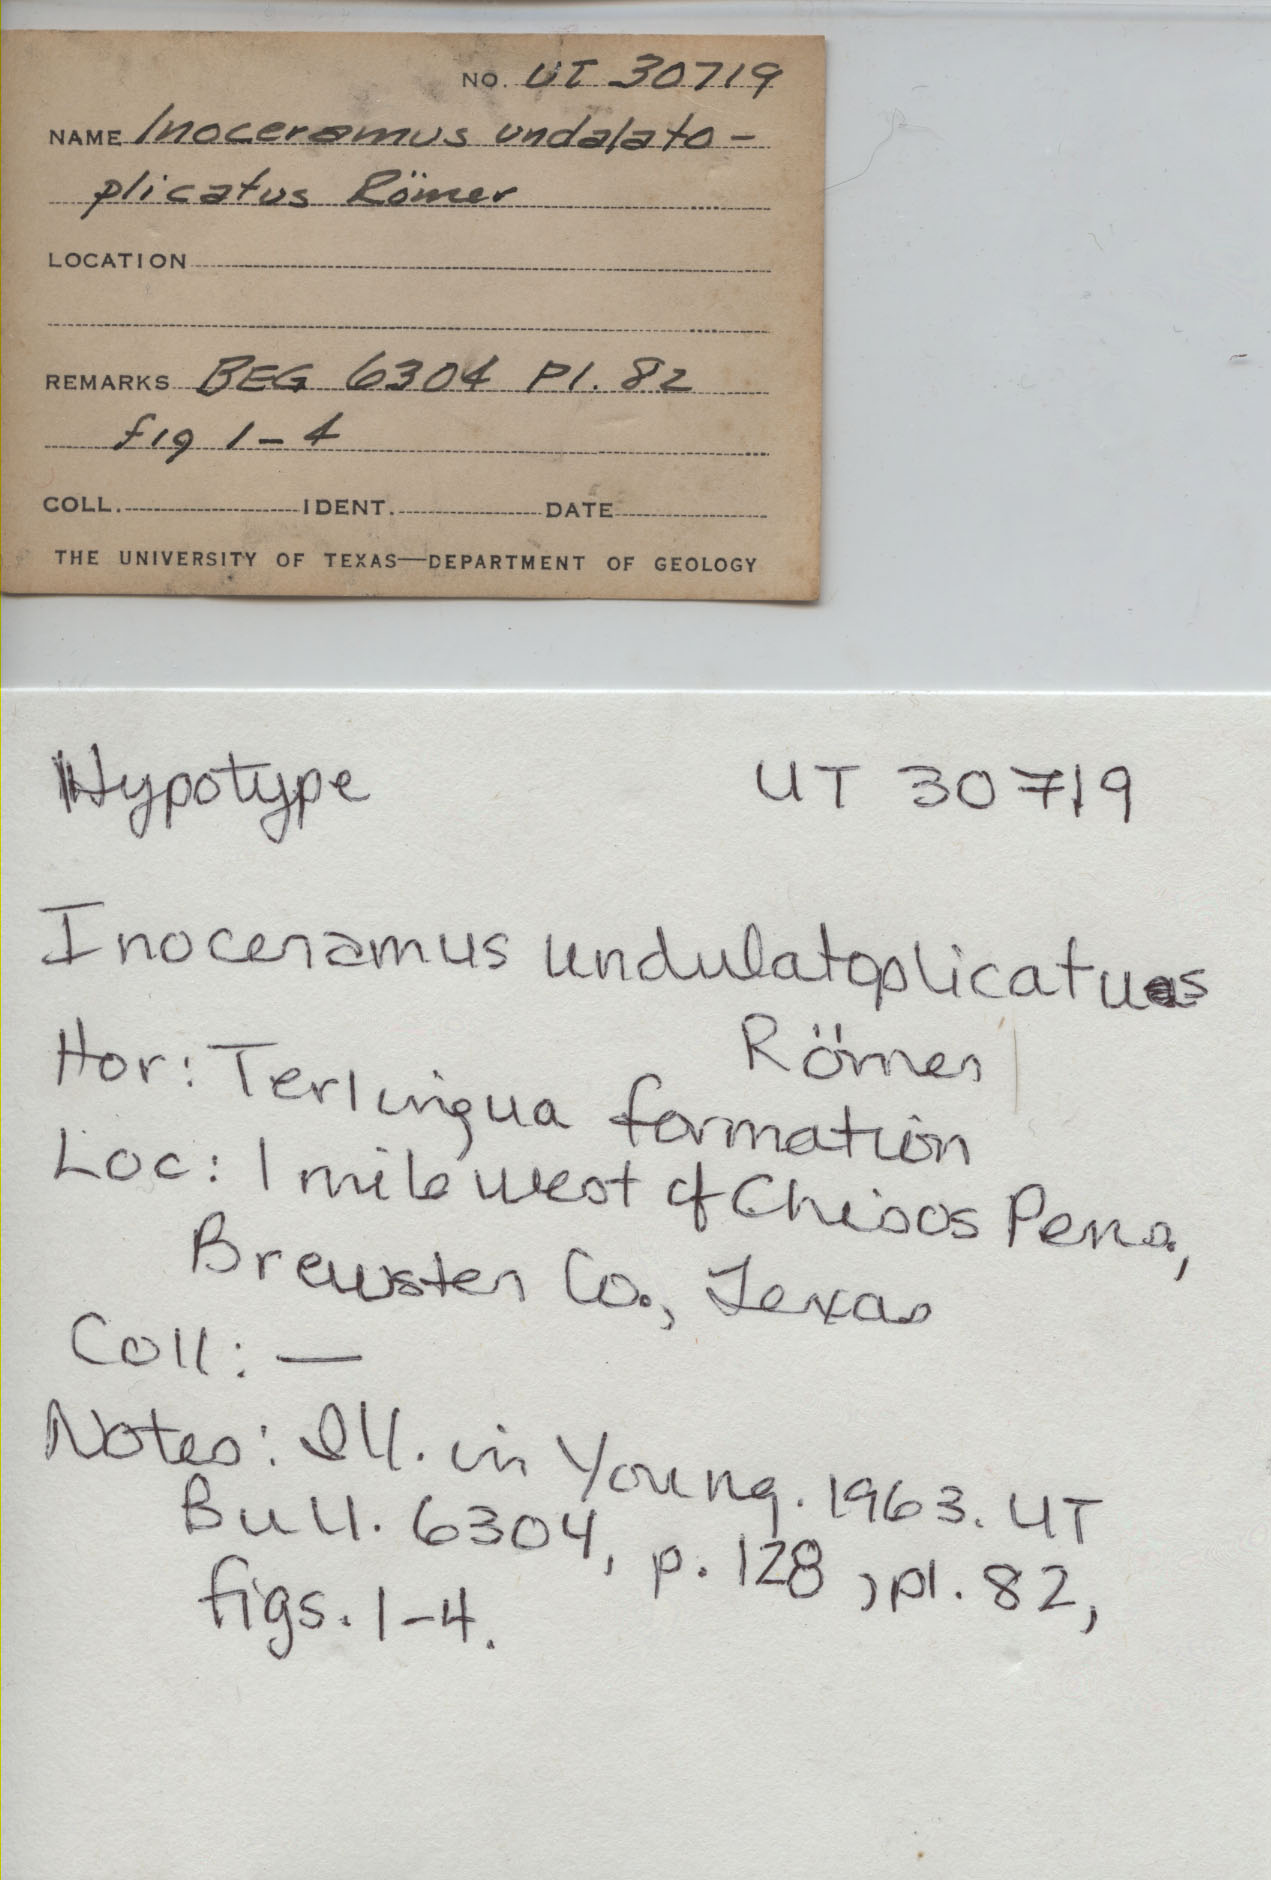 NO. UT 30719
NAME Inoceramus undalato-
plicatus Römer
LOCATION
REMARKS BEG 6304 Pl. 82
fig 1-4
COLL. IDENT. DATE
THE UNIVERSITY OF TEXAS—DEPARTMENT OF GEOLOGY
Hypotype UT 30719
Inoceramus undulatoplicatus
Römer
Hor: Terlingua formation
Loc: 1 mile west of Chisos Pena,
Brewster Co., Texas
Coll: —
Notes: Ill. in Young. 1963. UT
Bull. 6304, p. 128, pl. 82,
figs. 1-4.